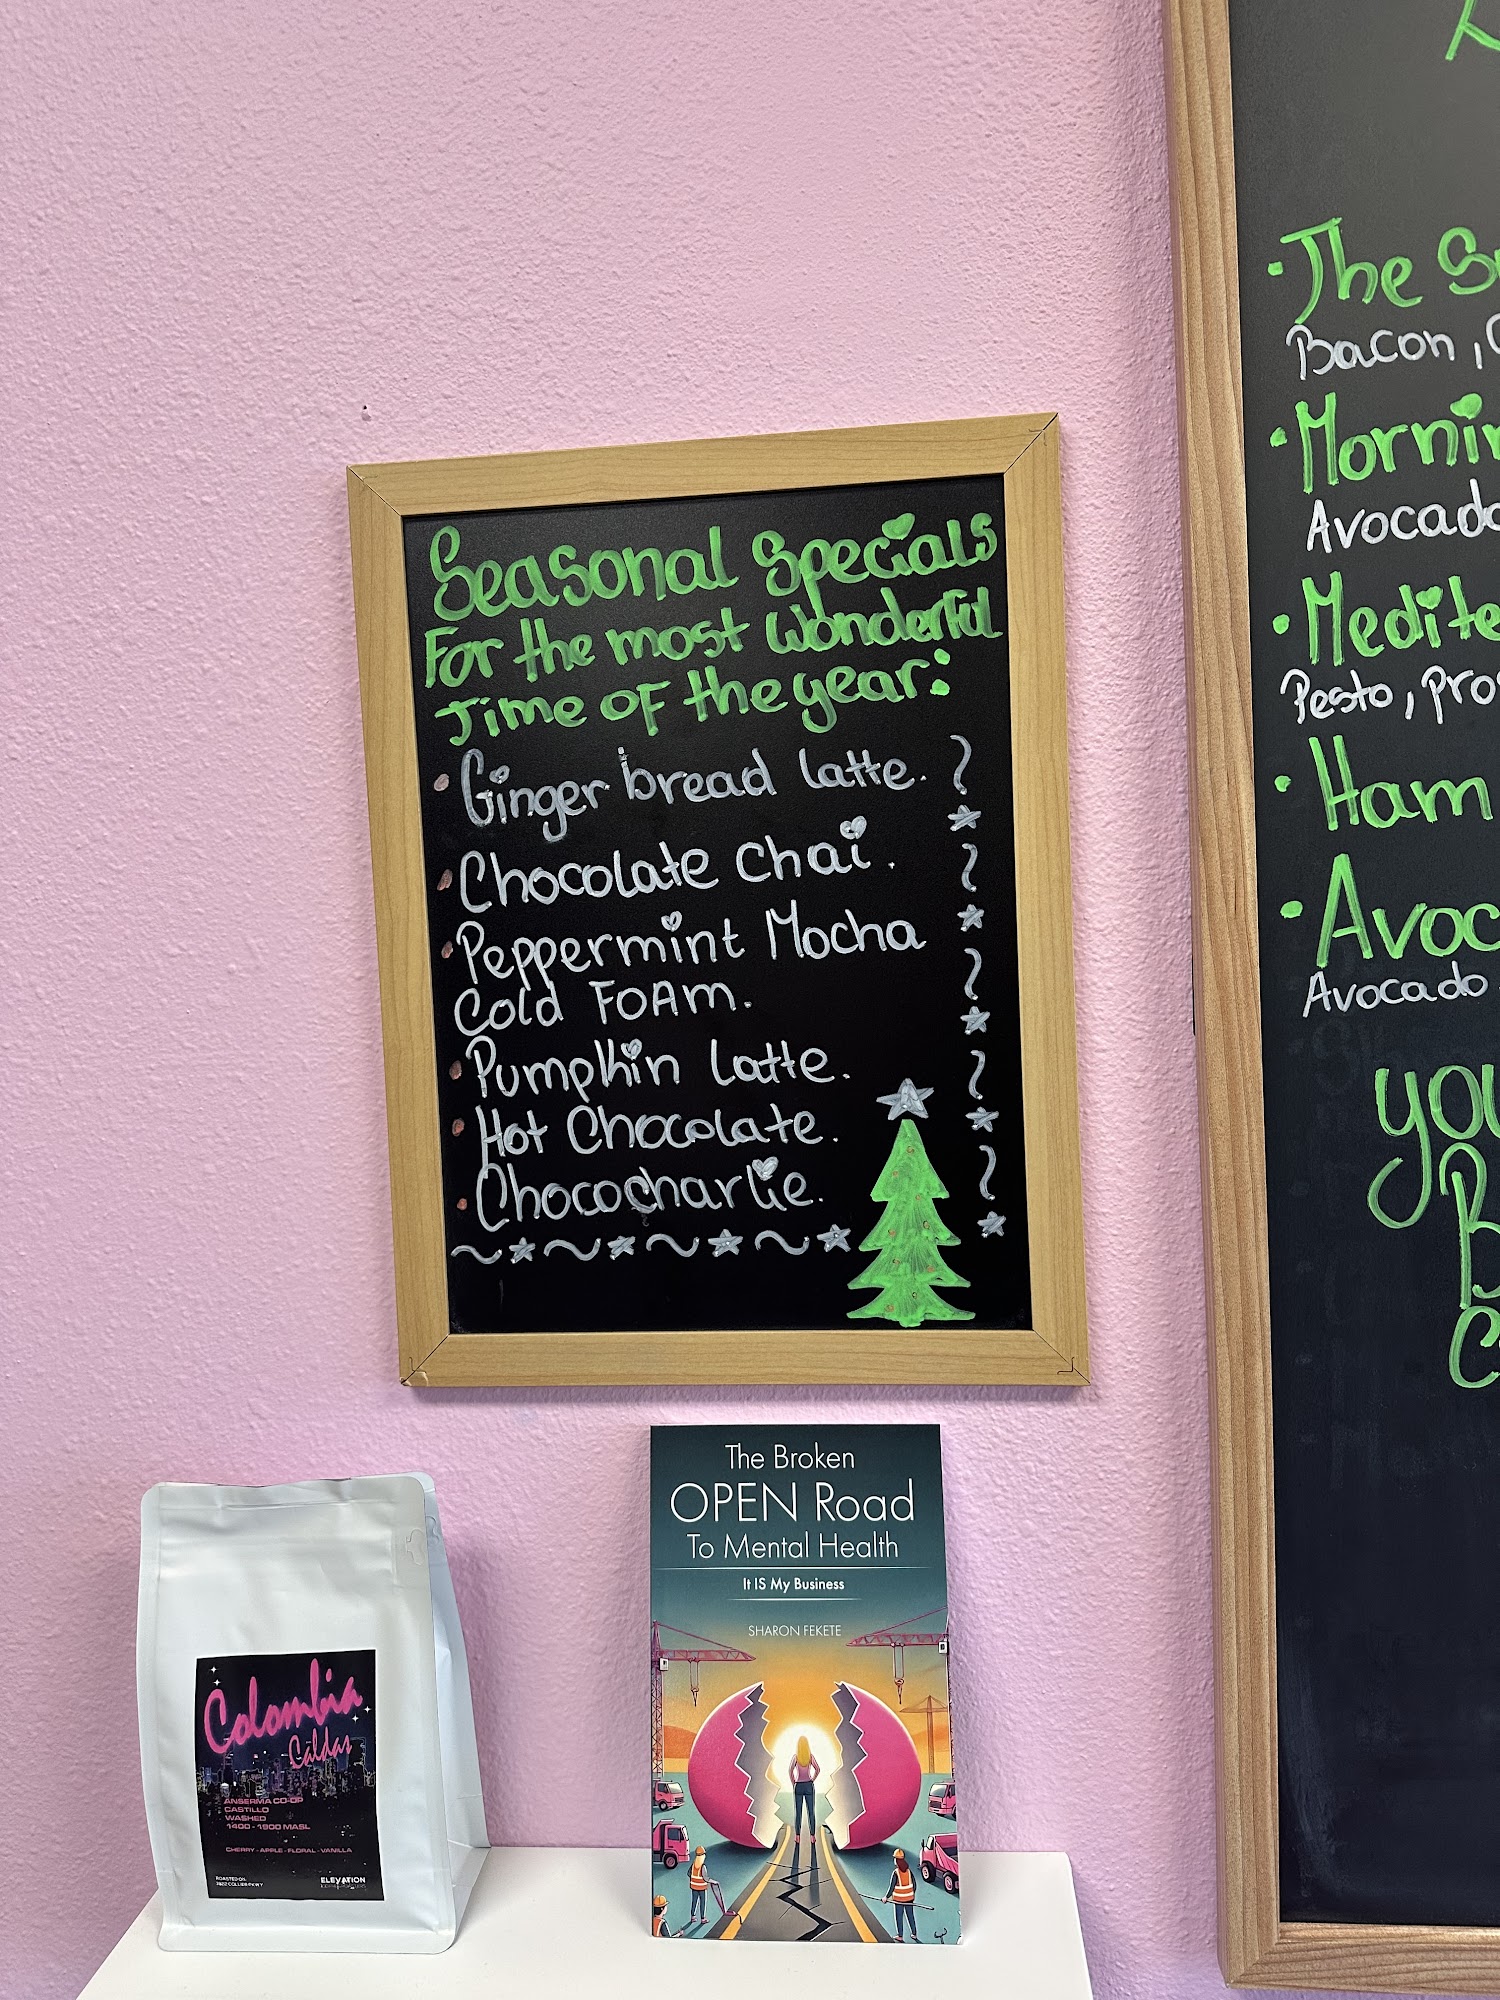 Seasonal Specials
For the most wonderful
Time of the year:
• Ginger bread latte.
• Chocolate chai.
• Peppermint Mocha
Cold FOAm.
• Pumpkin Latte.
• Hot Chocolate.
• Chococharlie.
• The
Bacon,
Avocado
Pesto,
• Ham
Avocado
The Broken
OPEN Road
To Mental Health
It IS My Business
SHARON FEKETE
Colombia
Caldas
ANSERMA CO-OP
CASTILLO
WASHED
1400 - 1900 MASL
CHERRY - APPLE - FLORAL - VANILLA
ROASTED ON:
ELEVATION